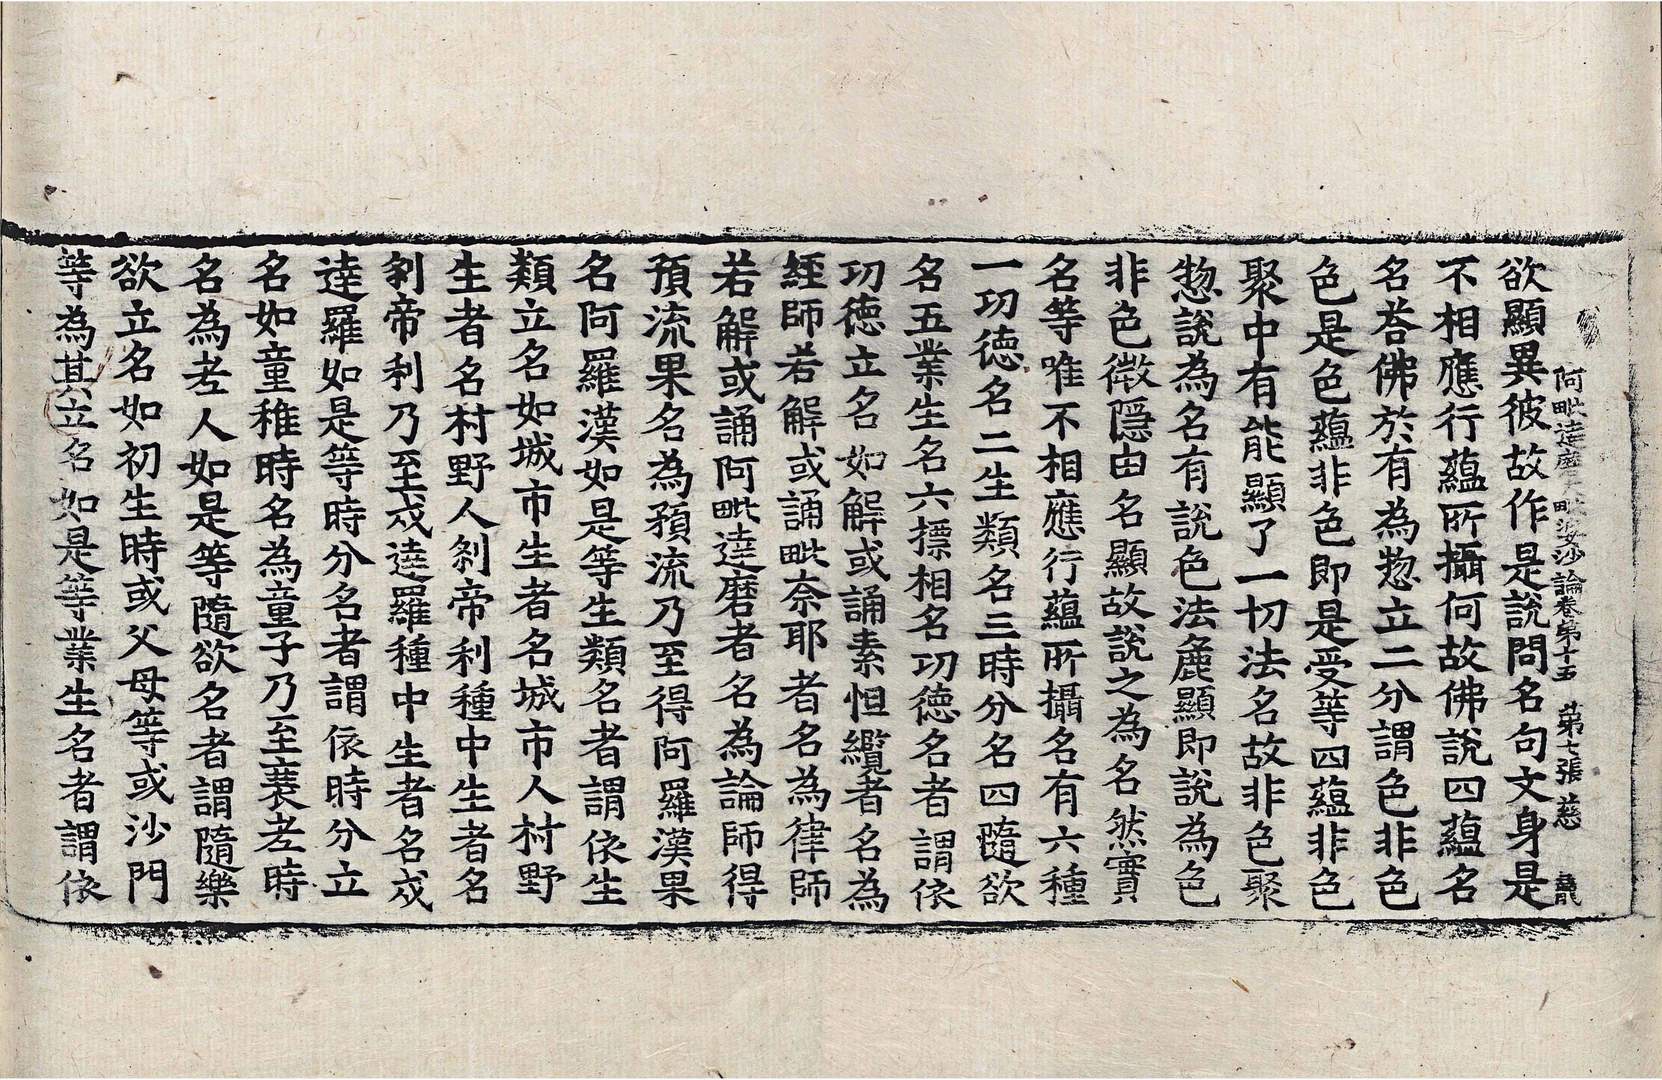 阿毗達磨毗婆沙論卷第十五　第七張　慈　龍
欲顯異彼故作是說問名句文身是
不相應行蘊所攝何故佛說四蘊名
名荅佛於有為惣立二分謂色非色
色是色蘊非色即是受等四蘊非色
聚中有能顯了一切法名故非色聚
惣說為名有說色法麁顯即說為色
非色微隱由名顯故說之為名然實
名等唯不相應行蘊所攝名有六種
一功德名二生類名三時分名四隨欲
名五業生名六摽相名功德名者謂依
功德立名如解或誦素怛纜者名為
經師若解或誦毗奈耶者名為律師
若解或誦阿毗達磨者名為論師得
預流果名為預流乃至得阿羅漢果
名阿羅漢如是等生類名者謂依生
類立名如城市生者名城市人村野
生者名村野人剎帝利種中生者名
剎帝利乃至戍達羅種中生者名戍
達羅如是等時分名者謂依時分立
名如童稚時名為童子乃至衰老時
名為老人如是等隨欲名者謂隨樂
欲立名如初生時或父母等或沙門
等為其立名如是等業生名者謂依